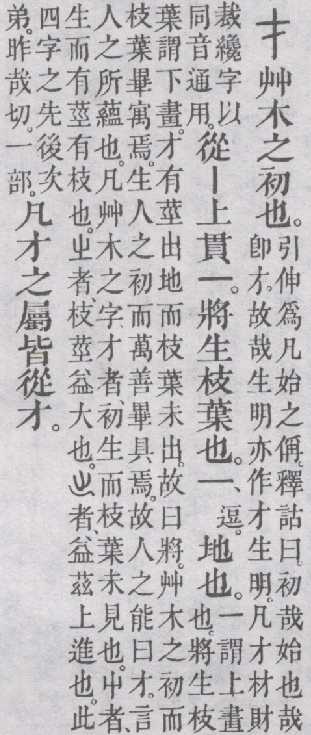 才艸木之初也。
引伸爲凡始之偁。釋詁曰。初哉始也。哉
卽才。故哉生明亦作才生明。凡才材財
裁纔字以
同音通用。
從丨上貫一。將生枝葉也。一、
逗。
地也。
一謂上畫
也將生枝
葉謂下畫。才有莖出地而枝葉未出。故曰將。艸木之初而
枝葉畢寓焉。生人之初而萬善畢具焉。故人之能曰才。言
人之所蘊也。凡艸木之字。才者、初生而枝葉未見也。屮者、
生而有莖有枝也。㞢者、枝莖益大也。出者、益茲上進也。此
四字之先後次
弟。昨哉切。一部。
凡才之屬皆從才。